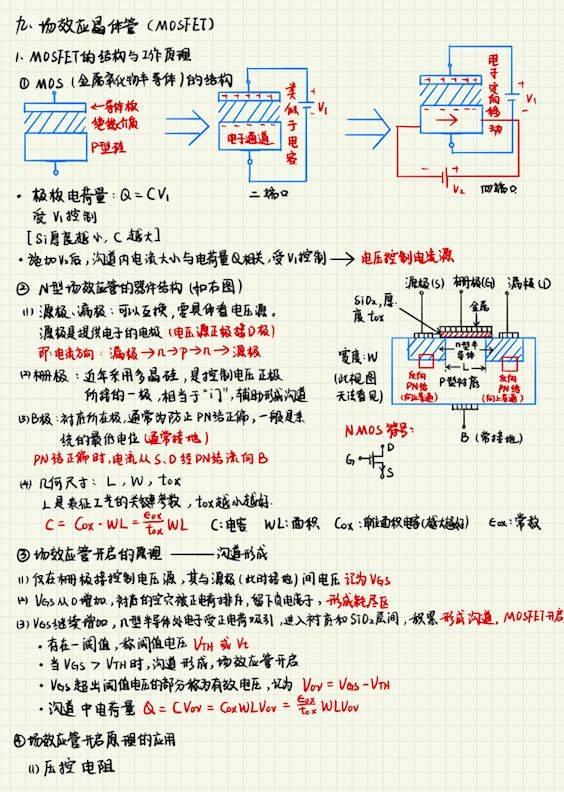 九、场效应晶体管(MOSFET)
1、MOSFET的结构与工作原理
① MOS(金属氧化物半导体)的结构
←导体板
绝缘介质
P型硅
++++++
电子通道
类似于电容
V1
二端口
++++++
→
电子定向移动
V1
V2
四端口
· 极板电荷量:Q=CV1
受V1控制
[Si厚度越小,C越大]
· 施加V2后,沟道内电流大小与电荷量Q相关,受V1控制 → 电压控制电流源
② N型场效应管的器件结构(如右图)
(1) 源极、漏极:可以互换,需具体看电压源。
源极是提供电子的电极(电压源正极接D极)
即:电流方向:漏极→n→P→n→源极
(2)栅极:近年采用多晶硅,是控制电压正极
所接的一极,相当于“门”,辅助形成沟道
(3)B极:衬底所在极,通常为防止PN结正偏,一般是系
统的最低电位(通常接地)
PN结正偏时,电流从S、D经PN结流向B
(4) 几何尺寸:L,W,tox
L是表征工艺的关键参数,tox越小越好.
C = Cox·WL = εox/tox WL C:电容 WL:面积 Cox:单位面积电容(越大越好) εox:常数
源极(S) 栅极(G) 漏极(D)
SiO2,厚度tox
金属
n型半导体
L
P型衬底
反向PN结(向上导通)
反向PN结(向上导通)
宽度:W
(此视图无法看见)
B (常接地)
NMOS符号:
G
D
S
③ 场效应管开启的原理 —— 沟道形成
(1) 仅在栅极接控制电压源,其与源极(此时接地)间电压记为VGS
(2) VGS从0增加,衬底的空穴被正电荷排斥,留下负电离子,形成耗尽区
(3) VGS继续增加,n型半导体处电子受正电荷吸引,进入衬底和SiO2层间,积累形成沟道,MOSFET开启
· 存在一阈值,称阈值电压 VTH 或 Vt
· 当VGS > VTH时,沟道形成,场效应管开启
· VGS超出阈值电压的部分称为有效电压,记为 Vov = VGS - VTH
· 沟道中电荷量 Q = CVov = CoxWLVov = εox/tox WLVov
④场效应管开启原理的应用
(1) 压控电阻